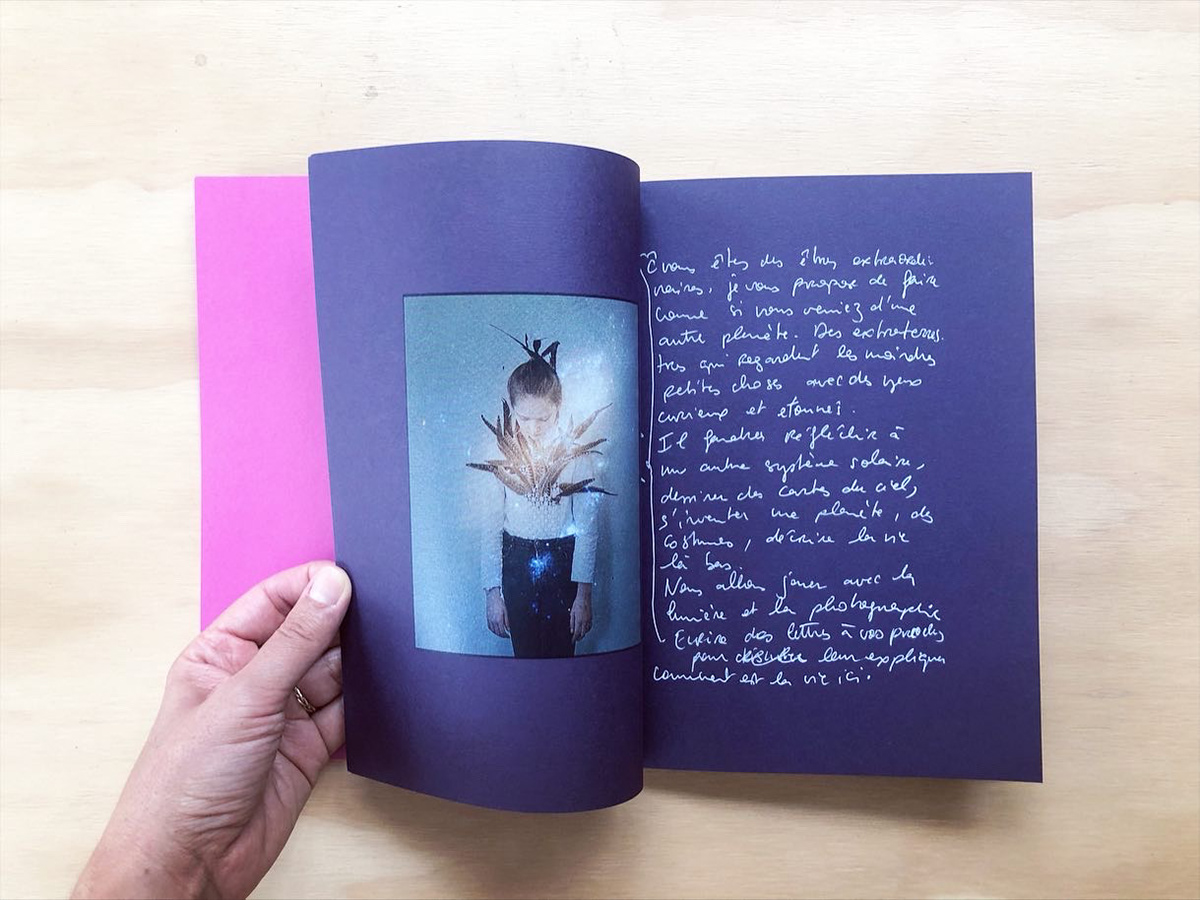 vous êtes des êtres extraordi-
naires, je vous propose de faire
comme si vous veniez d'une
autre planète. Des extraterres-
tres qui regardent les moindres
petites choses avec des yeux
curieux et étonnés.
Il faudra réfléchir à
un autre système solaire,
dessiner des cartes du ciel,
s'inventer une planète, des
costumes, décrire la vie
là bas.
Nous allons jouer avec la
lumière et la photographie
Ecrire des lettres à vos proches
pour leur expliquer
comment est la vie ici.